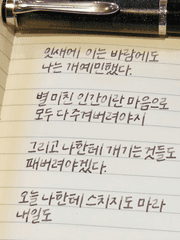 잇새에 이는 바람에도
나는 개예민했다.
별 미친 인간이란 마음으로
모두 다 수겨버려야시
그리고 나한테 개기는 것들도
패버려야겠다.
오늘 나한테 스치지도 마라
내일도